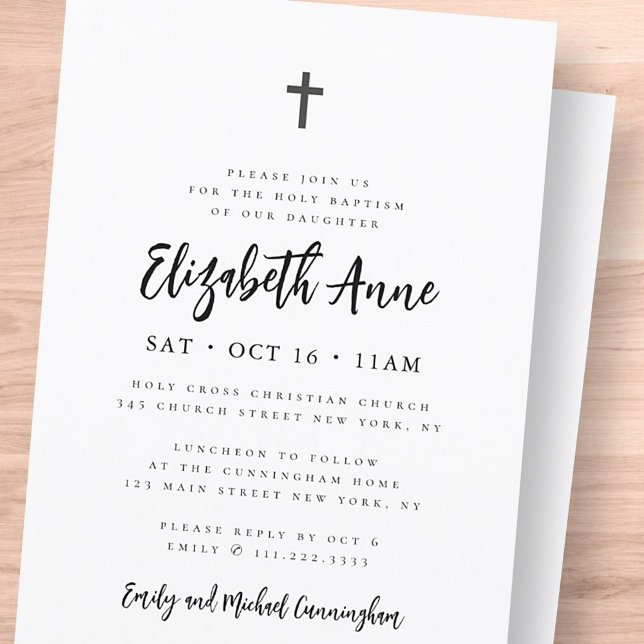 PLEASE JOIN US
FOR THE HOLY BAPTISM
OF OUR DAUGHTER
Elizabeth Anne
SAT • OCT 16 • 11AM
HOLY CROSS CHRISTIAN CHURCH
345 CHURCH STREET NEW YORK, NY
LUNCHEON TO FOLLOW
AT THE CUNNINGHAM HOME
123 MAIN STREET NEW YORK, NY
PLEASE REPLY BY OCT 6
EMILY ✆ 111.222.3333
Emily and Michael Cunningham